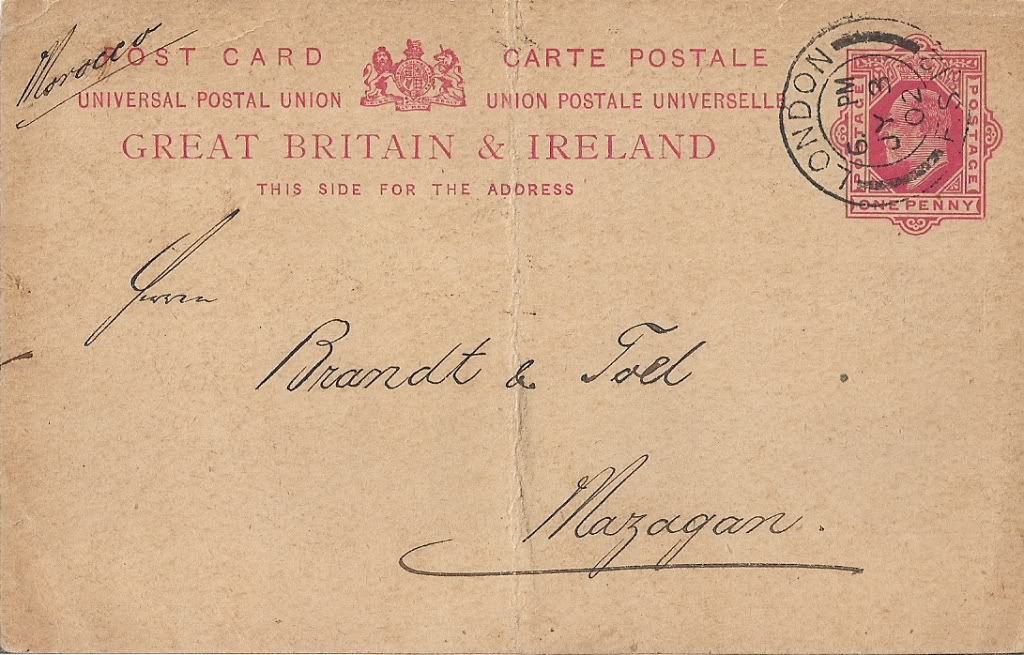 Morocco
POST CARD CARTE POSTALE
UNIVERSAL POSTAL UNION UNION POSTALE UNIVERSELLE
GREAT BRITAIN & IRELAND
THIS SIDE FOR THE ADDRESS
LONDON
6 PM
JY 3
02
POSTAGE
POSTAGE
ONE PENNY
Herren
Brandt & Toel
Mazagan.